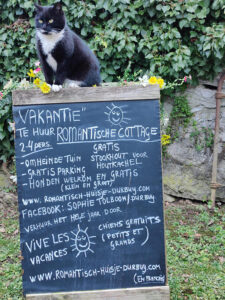 VAKANTIE"
TE HUUR ROMANTISCHE COTTAGE
2-4 PERS. GRATIS
-OMHEINDE TUIN STOOKHOUT VOOR
-GRATIS PARKING HOUTKACHEL
-HONDEN WELKOM EN GRATIS
(KLEIN EN GROOT)
WWW.ROMANTISCH-HUISJE-DURBUY.COM
FACEBOOK: SOPHIE TOLBOOM/DURBUY
VERHUUR HET HELE JAAR DOOR
VIVE LES CHIENS GRATUITS
VACANCES (PETITS ET
GRANDS)
WWW.ROMANTISCH-HUISJE-DURBUY.COM
(EN FRANCAIS)